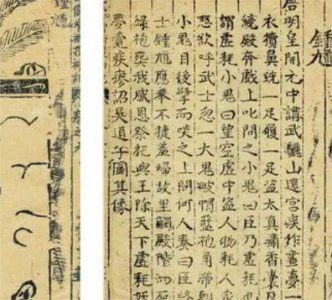 鍾馗
唐明皇開元中講武驪山還宮疾作晝夢一
衣犢鼻跣一足履一足盜太真繡香囊及
繞殿奔戲上叱問之小鬼曰臣乃虛耗也
謂虛耗小鬼曰望空虛中盜人物耗人家
怒欲呼武士忽一大鬼破帽藍袍角帶
小鬼目後擘而啖之上問何人奏曰臣終
士鍾馗應舉不捷羞歸故里觸殿階而死
綠袍葬我感恩祭祀與王除天下虛耗妖
夢覺疾瘳詔吳道子圖其像